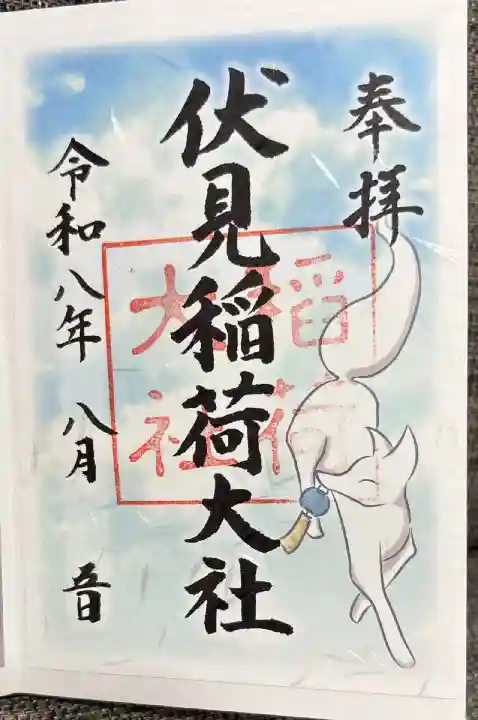 奉拝
伏見稲荷大社
稲荷
大社
令和八年 八月 五日